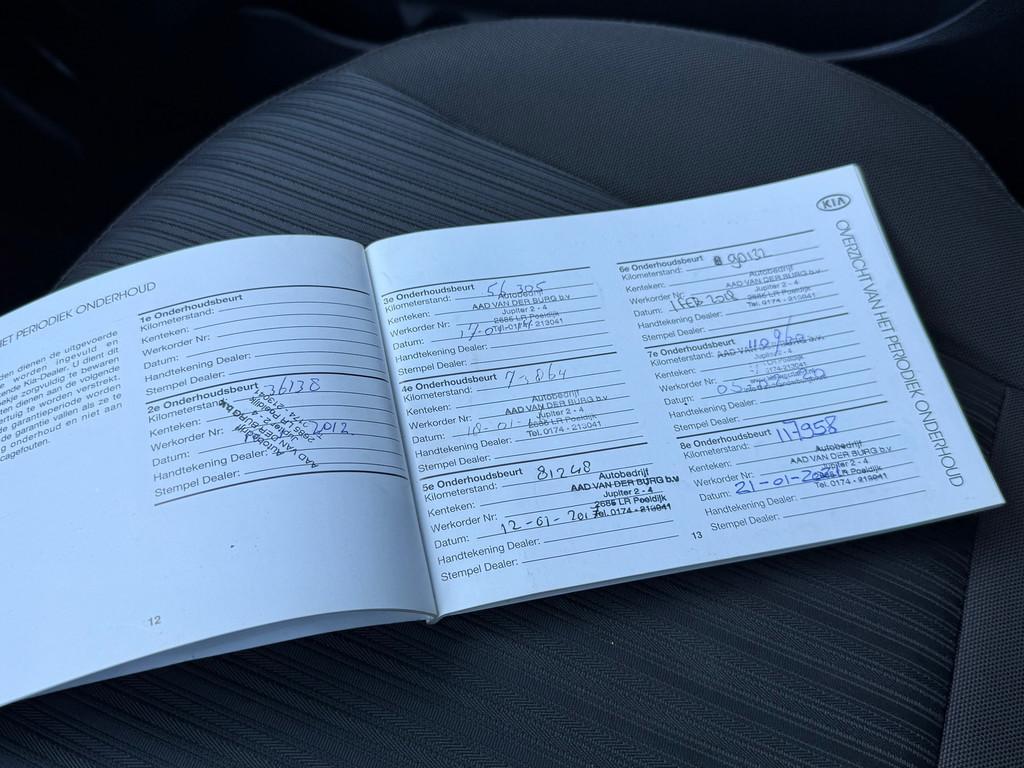 ET PERIODIEK ONDERHOUD
en dienen de uitgevoerde
worden ingevuld en
ende Kia-Dealer. U dient dit
ekje zorgvuldig te bewaren
ten dienen aan de volgende
ertuig te worden verstrekt.
de garantieperiode worden
de garantie vallen als ze te
g onderhoud en niet aan
cagefouten.
1e Onderhoudsbeurt
Kilometerstand:
Kenteken:
Werkorder Nr:
Datum:
Handtekening Dealer:
Stempel Dealer:
2e Onderhoudsbeurt
Kilometerstand: 36138
Kenteken:
Werkorder Nr:
Datum: 2012
Handtekening Dealer:
Stempel Dealer:
AAD VAN DER BURG b.v
12
3e Onderhoudsbeurt
Kilometerstand: 56305
Kenteken: Autobedrijf
AAD VAN DER BURG b.v
Werkorder Nr: Jupiter 2 - 4
2685 LR Poeldijk
Datum: Tel. 0174 - 213041
Handtekening Dealer:
Stempel Dealer:
4e Onderhoudsbeurt
Kilometerstand:
Kenteken: Autobedrijf
AAD VAN DER BURG b.v
Werkorder Nr: Jupiter 2 - 4
2685 LR Poeldijk
Datum: 18-01- Tel. 0174 - 213041
Handtekening Dealer:
Stempel Dealer:
5e Onderhoudsbeurt
Kilometerstand: 81248
Kenteken: Autobedrijf
AAD VAN DER BURG b.v
Werkorder Nr: Jupiter 2 - 4
2685 LR Poeldijk
Datum: 12-01-2017 Tel. 0174 - 213041
Handtekening Dealer:
Stempel Dealer:
6e Onderhoudsbeurt
Kilometerstand: 90122
Kenteken: Autobedrijf
AAD VAN DER BURG b.v
Werkorder Nr: Jupiter 2 - 4
2685 LR Poeldijk
Datum: Tel. 0174 - 213041
Handtekening Dealer:
Stempel Dealer:
7e Onderhoudsbeurt
Kilometerstand: AAD VAN DER BURG b.v.
Kenteken:
Werkorder Nr:
Datum: 05
Handtekening Dealer:
Stempel Dealer:
8e Onderhoudsbeurt
Kilometerstand: 117958
Kenteken: Autobedrijf
AAD VAN DER BURG b.v
Werkorder Nr: Jupiter 2 - 4
2685 LR Poeldijk
Datum: 21-01- Tel. 0174 - 213041
Handtekening Dealer:
Stempel Dealer:
13
KIA
OVERZICHT VAN HET PERIODIEK ONDERHOUD